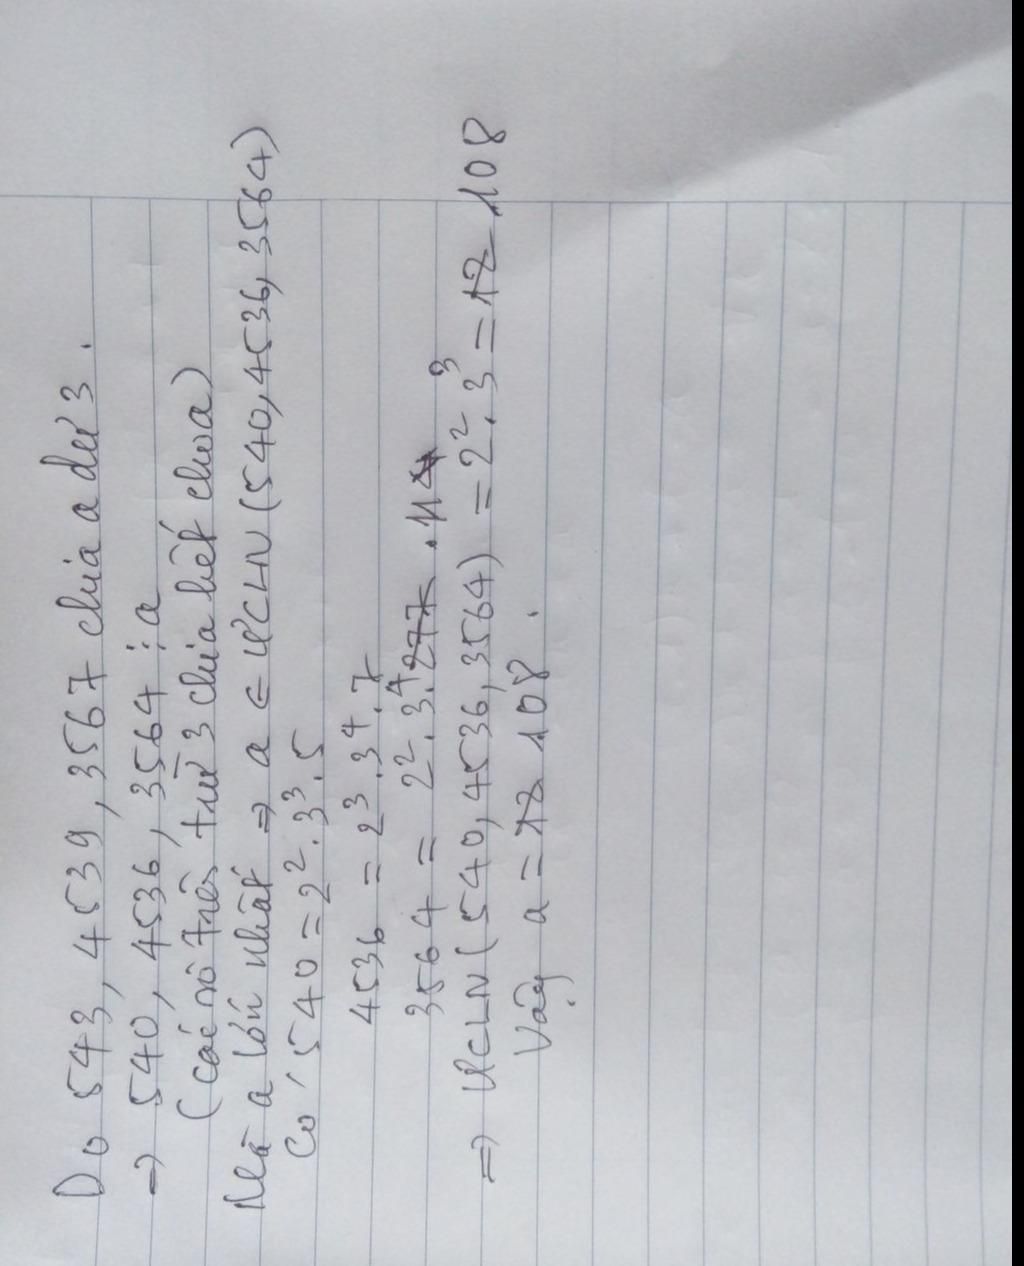 Do 543, 4539, 3567 chia a dư 3.
⇒ 540, 4536, 3564 ⋮ a
(các số trên trừ 3 chia hết cho a)
Mà a lớn nhất ⇒ a = ƯCLN (540, 4536, 3564)
Có 540 = 2². 3³. 5
4536 = 2³. 3⁴. 7
3564 = 2². 3⁴. 11
⇒ ƯCLN (540, 4536, 3564) = 2². 3³ = 108
Vậy a = 108.